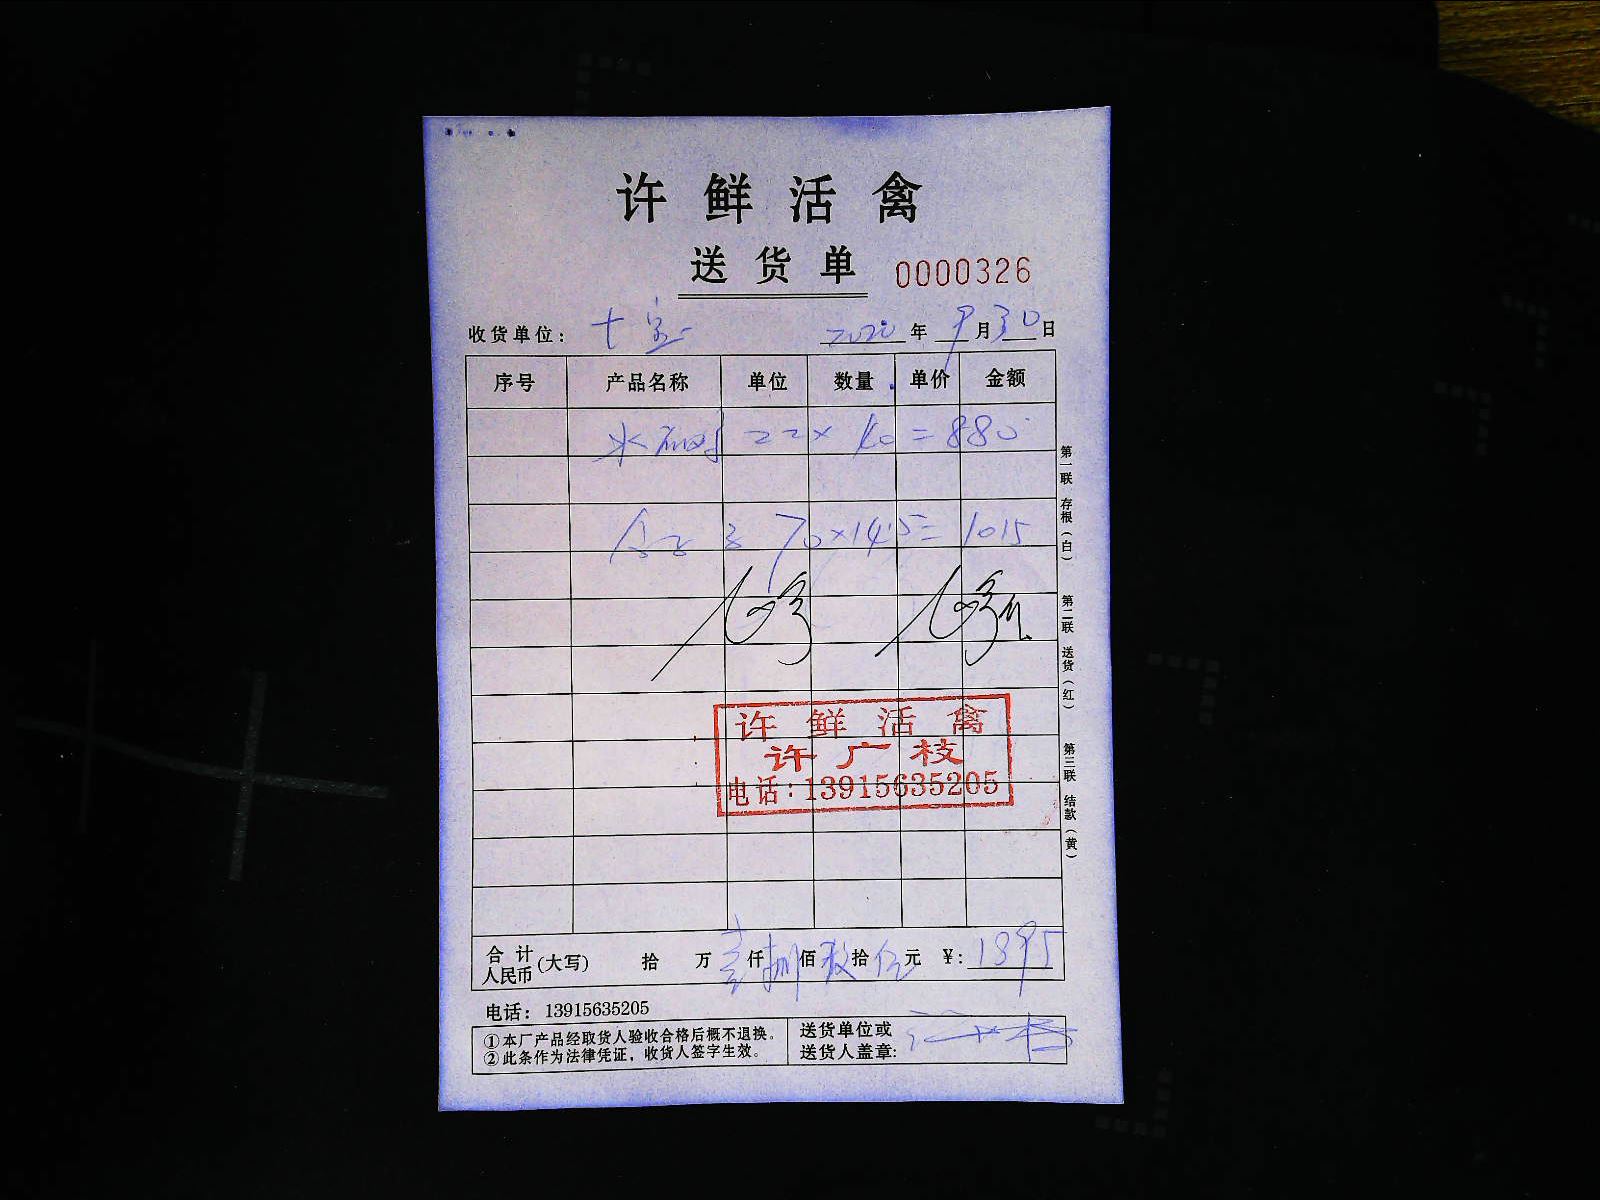 许鲜活禽
送货单 0000326
收货单位: 2020年9月30日
序号 产品名称 单位 数量 单价 金额
22× 40=880
70×14.5=1015
许鲜活禽
许广枝
电话:13915635205
合计人民币(大写) 拾 万 壹仟捌佰玖拾伍元 ¥:1895
电话: 13915635205
①本厂产品经取货人验收合格后概不退换。
②此条作为法律凭证,收货人签字生效。
送货单位或
送货人盖章:
第一联 存根(白)
第二联 送货(红)
第三联 结款(黄)